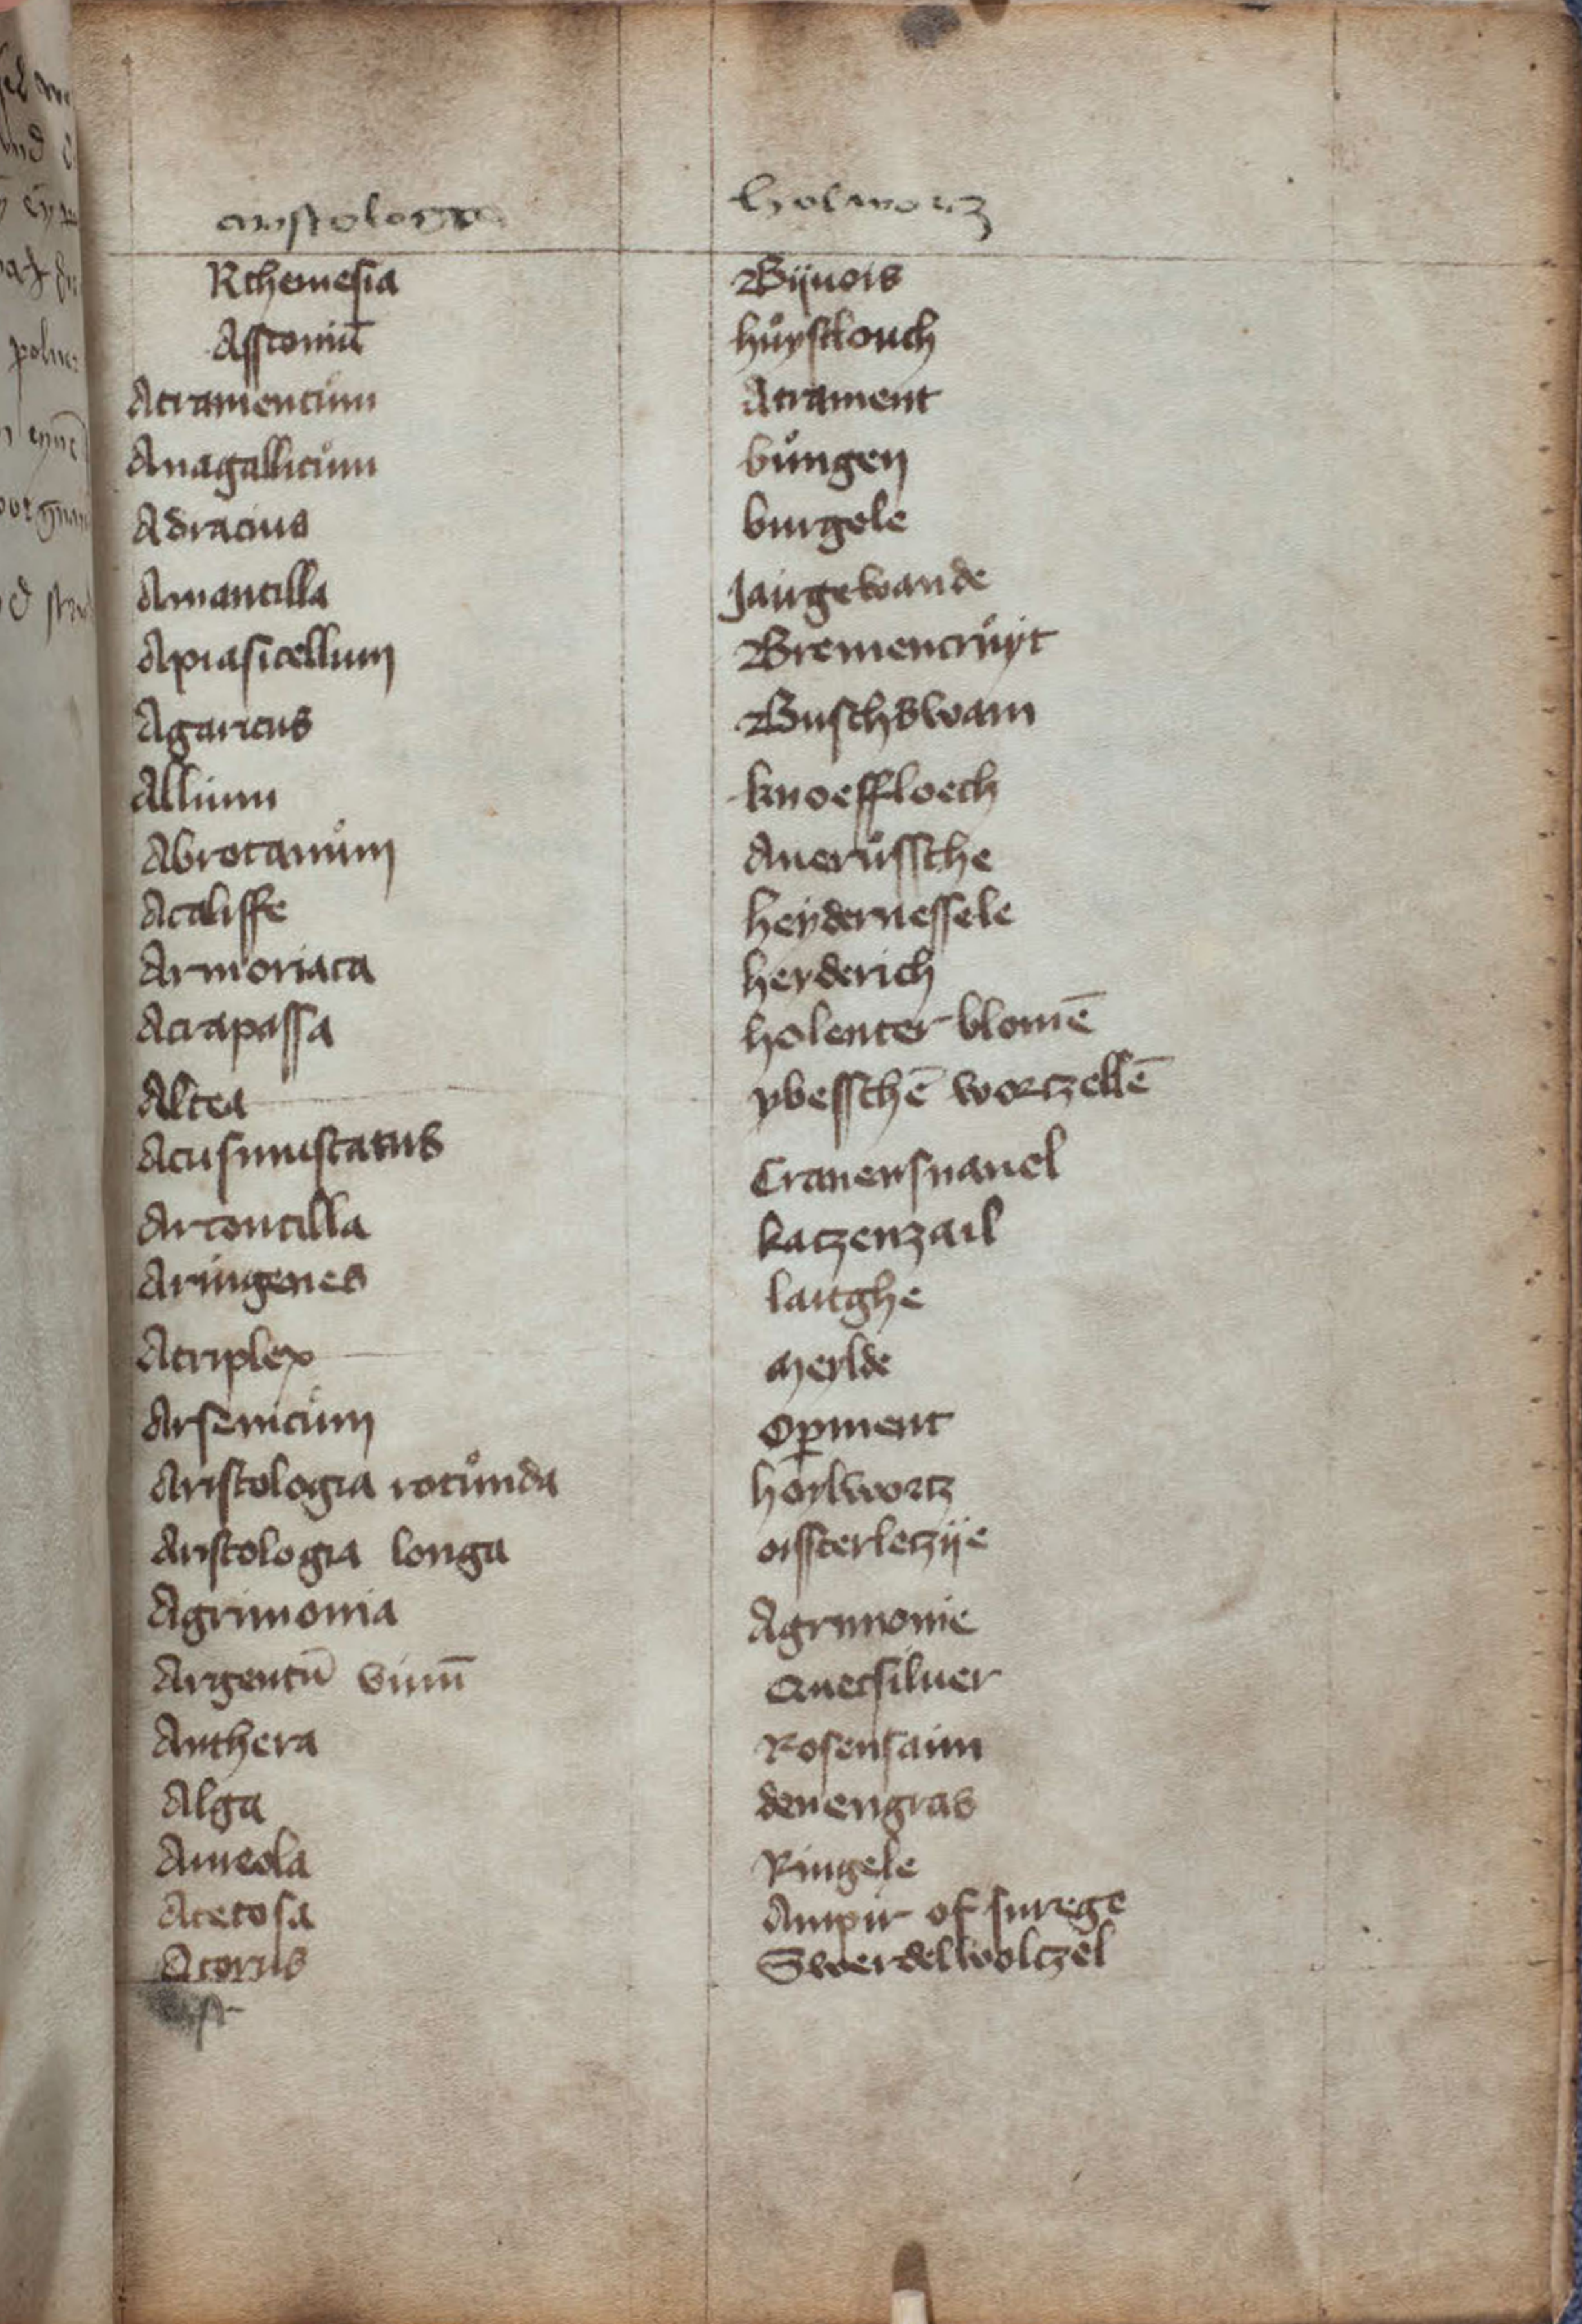 aristologia holwortz
Rthemesia Bijuois
Affroniū hůysslouch
Atramentům Atrament
Anagallicům bůngen
Adracius burgele
Amantilla Jairgewande
Apiasicellum Bremencrůyt
Agaricus Buschswam
Allium knoeffloech
Abrotanům Auerůssche
Acaliffe heydernessele
Armoriaca heyderich
Actapassa holenter blomē
Altea ybesschē wortzellē
Acusmustatus Cranensnauel
Artoncilla katzenzail
Aringenes laughe
Atriplex Meylde
Arsenicům Opiment
Aristologia rotůnda hoylwortz
Aristologia longa oissterletzije
Agrimonia Agrimonie
Argentū viuū Quecsiluer
Anthera Rosensaim
Alga denengras
Aureola Ringele
Acetosa Ampir of surege
Acorus Swerdelwoltzel